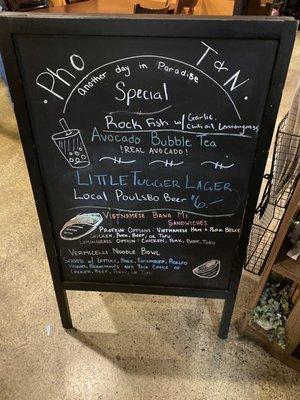 Pho T & N
Another day in Paradise
Special
Rock Fish w/ Garlic,
Chili Lemongrass
Avocado Bubble Tea
!REAL AVOCADO!
LITTLE TUGGER LAGER
Local Poulsbo Beer $6.-
VIETNAMESE BANH MI
SANDWICHES
PROTEIN OPTIONS: VIETNAMESE HAM + PORK BELLY
CHICKEN, PORK, BEEF, OR TOFU
LEMONGRASS OPTION: CHICKEN, PORK, BEEF, TOFU
VERMICELLI NOODLE BOWL
SERVED W/ LETTUCE, CUCUMBER, PICKLED
VEGGIES, BEANSPROUTS AND YOUR CHOICE OF
CHICKEN, PORK, BEEF, OR TOFU